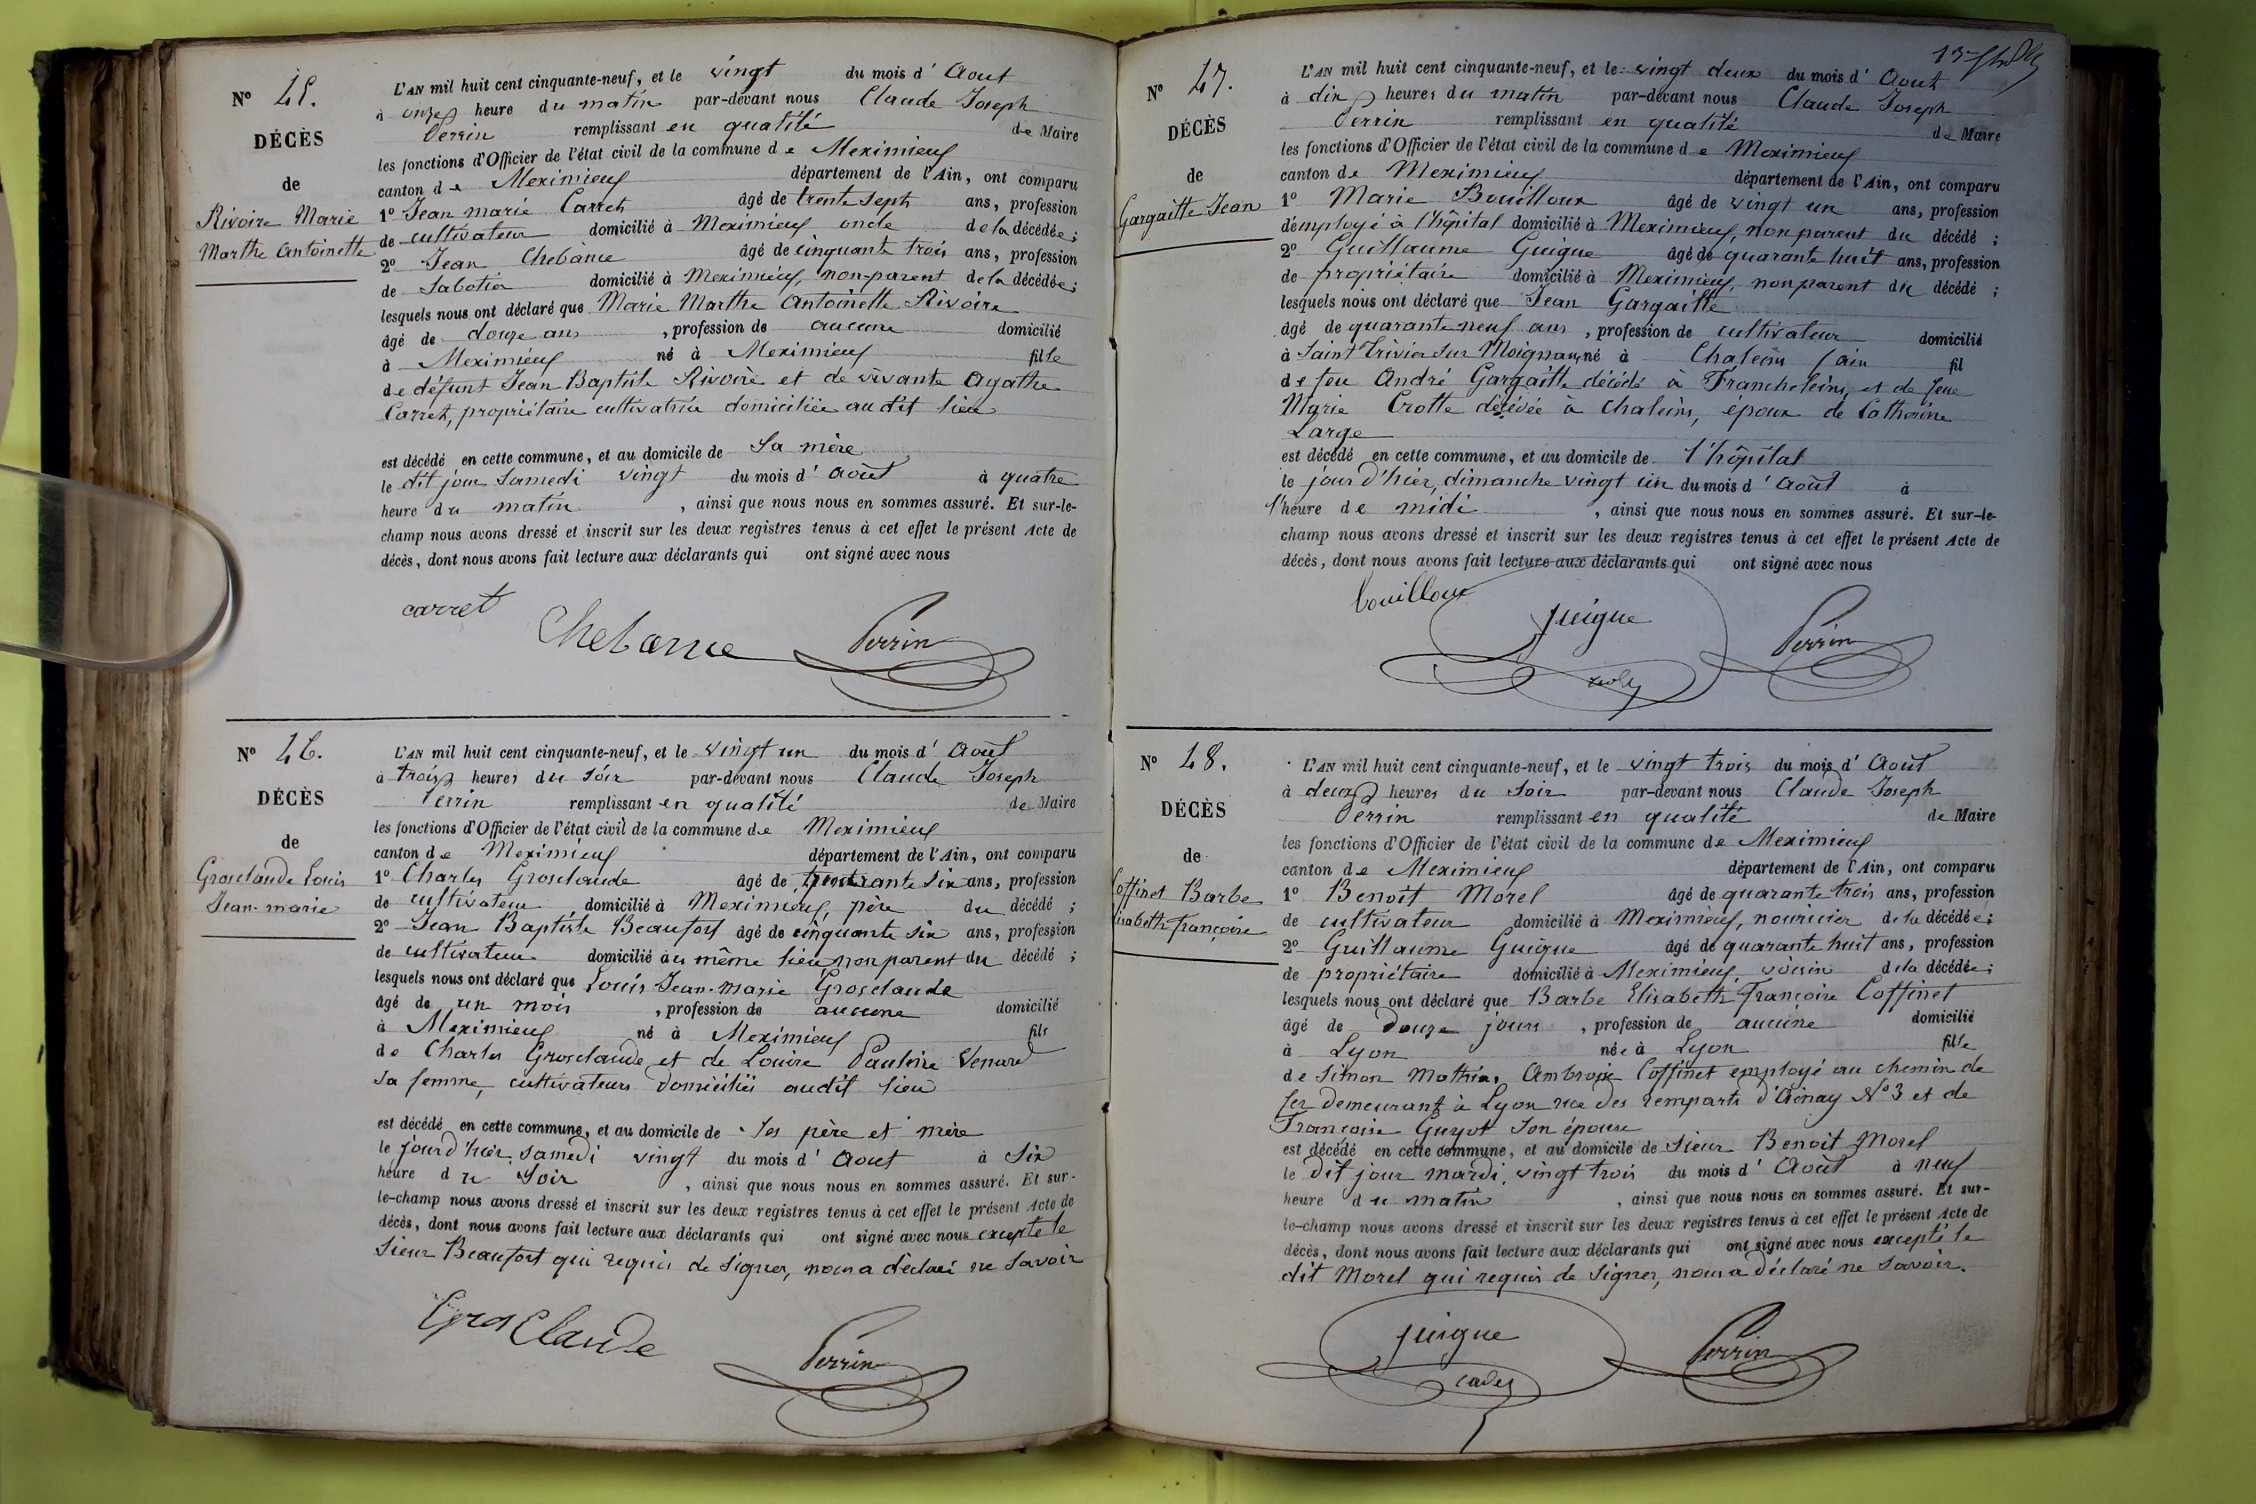 N° 45.
DÉCÈS
de
Rivoire Marie
Marthe Antoinette
L'AN mil huit cent cinquante-neuf, et le vingt du mois d'Aout
à onze heure du matin par-devant nous Claude Joseph
Perrin remplissant en qualité de Maire
les fonctions d'Officier de l'état civil de la commune de Meximieux
canton de Meximieux département de l'Ain, ont comparu
1° Jean marie Carret âgé de trente sept ans, profession
de cultivateur domicilié à Meximieux oncle de la décédée;
2° Jean Chebance âgé de cinquante trois ans, profession
de Sabotier domicilié à Meximieux, non parent de la décédée;
lesquels nous ont déclaré que Marie Marthe Antoinette Rivoire
âgé de douze ans, profession de aucune domicilié
à Meximieux né à Meximieux fille
de défunt Jean Baptiste Rivoire et de vivante Agathe
Carret, propriétaire cultivatrice domiciliée au dit lieu
est décédé en cette commune, et au domicile de Sa mère
le dit jour Samedi vingt du mois d'Août à quatre
heure du matin, ainsi que nous nous en sommes assuré. Et sur-le-
champ nous avons dressé et inscrit sur les deux registres tenus à cet effet le présent Acte de
décès, dont nous avons fait lecture aux déclarants qui ont signé avec nous
carret
Chebance
Perrin
N° 46.
DÉCÈS
de
Grosclaude Louis
Jean-marie
L'AN mil huit cent cinquante-neuf, et le vingt un du mois d'Août
à trois heures du soir par-devant nous Claude Joseph
Perrin remplissant en qualité de Maire
les fonctions d'Officier de l'état civil de la commune de Meximieux
canton de Meximieux département de l'Ain, ont comparu
1° Charles Grosclaude âgé de six ans, profession
de cultivateur domicilié à Meximieux, père du décédé;
2° Jean Baptiste Beaufort âgé de cinquante six ans, profession
de cultivateur domicilié au même lieu, non parent du décédé;
lesquels nous ont déclaré que Louis Jean-Marie Grosclaude
âgé de un mois, profession de aucune domicilié
à Meximieux né à Meximieux fils
de Charles Grosclaude et de Louise Pauline Venard
sa femme, cultivateurs domiciliés audit lieu
est décédé en cette commune, et au domicile de ses père et mère
le jour d'hier, samedi vingt du mois d'Aout à six
heure du Soir, ainsi que nous nous en sommes assuré. Et sur-
le-champ nous avons dressé et inscrit sur les deux registres tenus à cet effet le présent Acte de
décès, dont nous avons fait lecture aux déclarants qui ont signé avec nous excepté le
Sieur Beaufort qui requis de signer, nous a déclaré ne savoir
Gros Claude
Perrin
N° 47.
DÉCÈS
de
Gargaitte Jean
L'AN mil huit cent cinquante-neuf, et le vingt deux du mois d'Aout
à dix heures du matin par-devant nous Claude Joseph
Perrin remplissant en qualité de Maire
les fonctions d'Officier de l'état civil de la commune de Meximieux
canton de Meximieux département de l'Ain, ont comparu
1° Marie Bouilloux âgé de vingt un ans, profession
d'employé à l'hôpital domicilié à Meximieux, non parent du décédé;
2° Guillaume Guigue âgé de quarante huit ans, profession
de propriétaire domicilié à Meximieux, non parent du décédé;
lesquels nous ont déclaré que Jean Gargaitte
âgé de quarante neuf ans, profession de cultivateur domicilié
à Saint Trivier sur Moignans, né à Chaleins (ain fil
de feu André Gargaitte décédé à Francheleins, et de feue
Marie Crotte décédée à Chaleins, époux de Catherine
Large
est décédé en cette commune, et au domicile de l'hôpital
le jour d'hier, dimanche vingt un du mois d'Août à
l'heure de midi, ainsi que nous nous en sommes assuré. Et sur-le-
champ nous avons dressé et inscrit sur les deux registres tenus à cet effet le présent Acte de
décès, dont nous avons fait lecture aux déclarants qui ont signé avec nous
bouilloux
guigue
Perrin
N° 48.
DÉCÈS
de
Coffinet Barbe
Elisabeth Françoise
L'AN mil huit cent cinquante-neuf, et le vingt trois du mois d'Août
à deux heures du soir par-devant nous Claude Joseph
Perrin remplissant en qualité de Maire
les fonctions d'Officier de l'état civil de la commune de Meximieux
canton de Meximieux département de l'Ain, ont comparu
1° Benoit Morel âgé de quarante trois ans, profession
de cultivateur domicilié à Meximieux, nouricier de la décédée;
2° Guillaume Guigue âgé de quarante huit ans, profession
de propriétaire domicilié à Meximieux, voisin de la décédée;
lesquels nous ont déclaré que Barbe Elisabeth Françoise Coffinet
âgé de Douze jours, profession de aucune domicilié
à Lyon née à Lyon fille
de Simon Mathias Ambroise Coffinet employé au chemin de
fer demeurant à Lyon rue des Remparts d'Ainay N° 3 et de
Françoise Guyot son épouse
est décédé en cette commune, et au domicile de Sieur Benoit Morel
le dit jour mardi, vingt trois du mois d'Août à neuf
heure du matin, ainsi que nous nous en sommes assuré. Et sur-
le-champ nous avons dressé et inscrit sur les deux registres tenus à cet effet le présent Acte de
décès, dont nous avons fait lecture aux déclarants qui ont signé avec nous excepté le
dit Morel qui requis de signer, nous a déclaré ne savoir.
guigue
Perrin